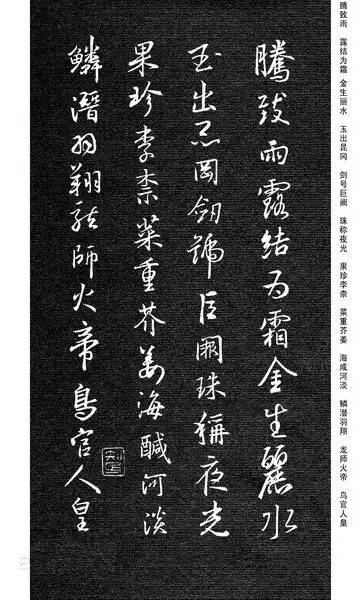 腾致雨　露结为霜　金生丽水　玉出昆冈　剑号巨阙　珠称夜光　果珍李柰　菜重芥姜　海咸河淡　鳞潜羽翔　龙师火帝　鸟官人皇
騰致雨露結为霜金生麗水
玉出崑岡劔號巨闕珠稱夜光
果珍李柰菜重芥姜海醎河淡
鱗潛羽翔龍師火帝鳥官人皇